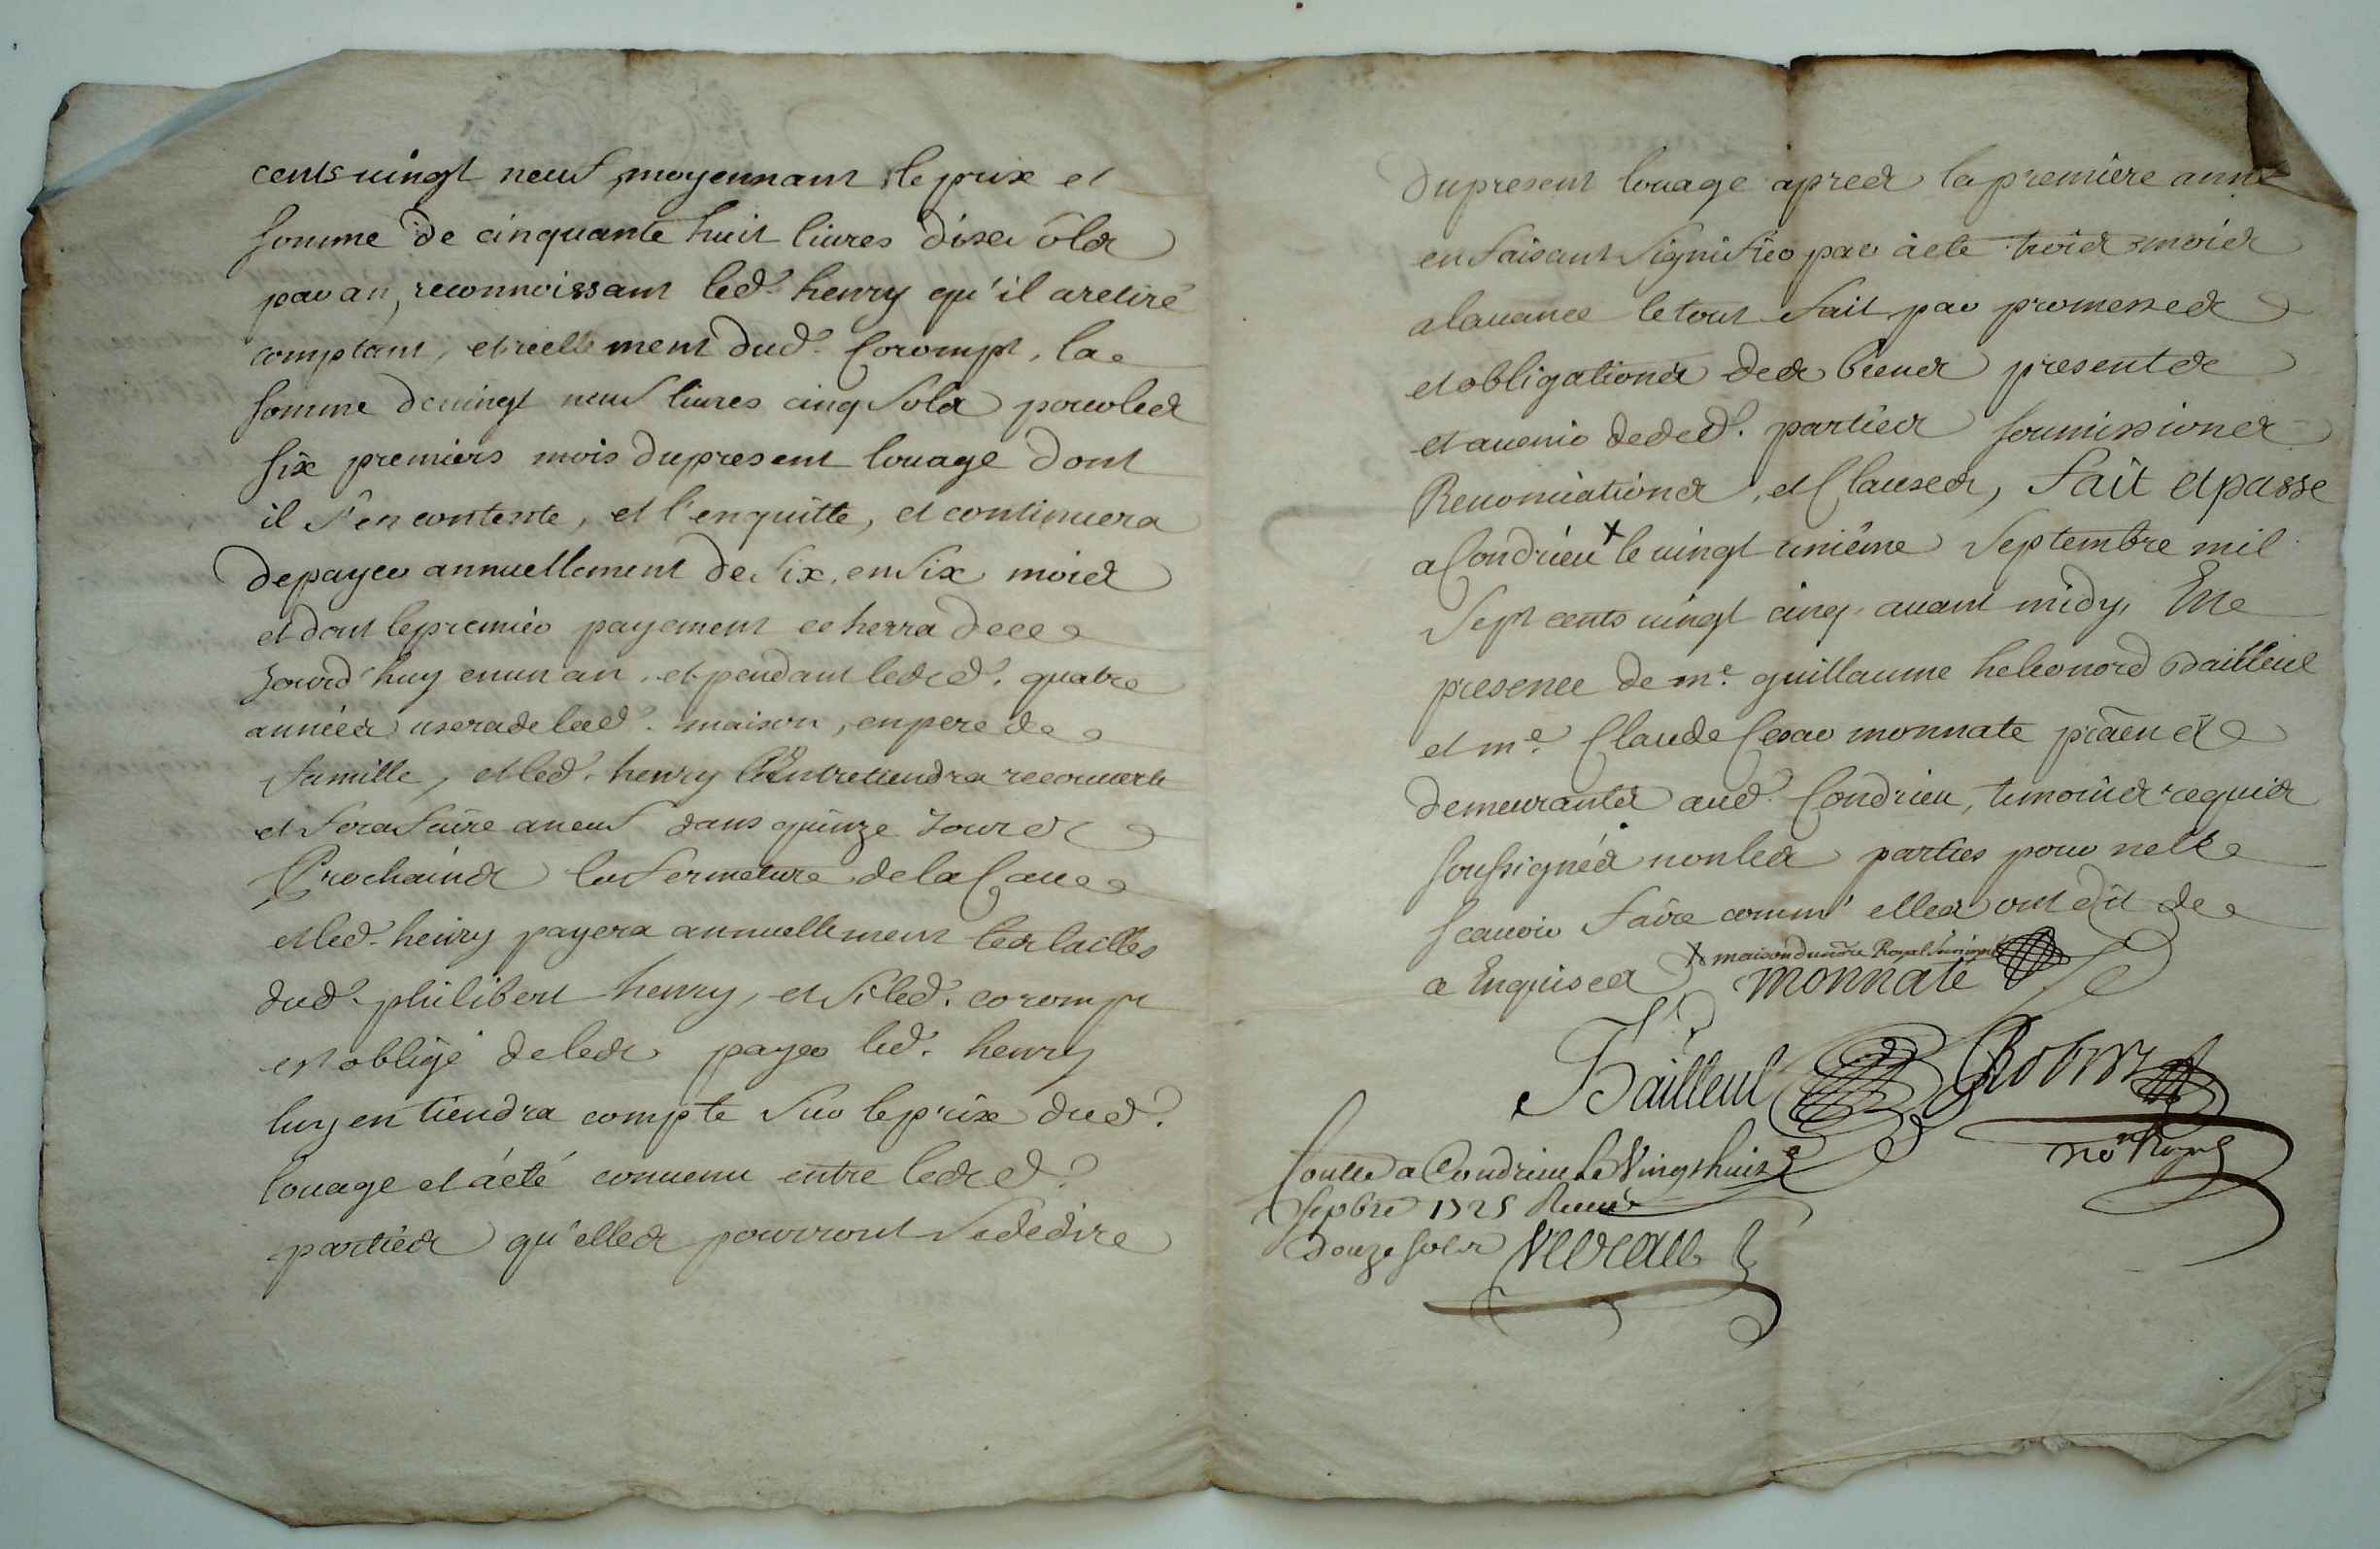 cents vingt neuf moyennant le prix et
somme de cinquante huit livres dix sols
par an, reconnoissant led. henry qu'il a retiré
comptant, et reellement dud. Corompt, la
somme de vingt neuf livres cinq sols pour les
six premiers mois du present louage dont
il s'en contente, et l'en quitte, et continuera
de payer annuellement de six, en six mois
et dont le premier payement echerra de ce
jourd'huy en un an, et pendant lesd. quatre
années usera de lad. maison, en pere de
famille, et led. henry l'Entretiendra recouverte
et fera faire a neuf dans quinze jours
Prochains la fermeture de la Cave
et led. henry payera annuellement les tailles
dud. philibert henry, et si led. corompt
est obligé de les payer led. henry
luy en tiendra compte sur le prix dud.
louage et a été convenu entre lesd.
parties qu'elles pourront se dedire
du present louage apres la premiere anné
en faisant signifier par acte trois mois
a lavance le tout fait par promesses
et obligations des biens presents
et avenir desd. parties soumissions
Renonciations, et Clauses, fait et passé
a Condrieu x le vingt unième Septembre mil
Sept cents vingt cinq avant midy, En
presence de me. guillaume heleonord Bailleul
et me. Claude Cesar monnate pratn et
demeurants aud. Condrieu, temoins requis
soussignés non les parties pour ne le
scavoir faire comm' elles ont dit de
ce Enquises
x maison du notre Royal soussigné
monnate
Bailleul
Robin
no.re Royal
Conllé a Condrieu le vingt huit
sepbre 1725 Receu
Douze sols